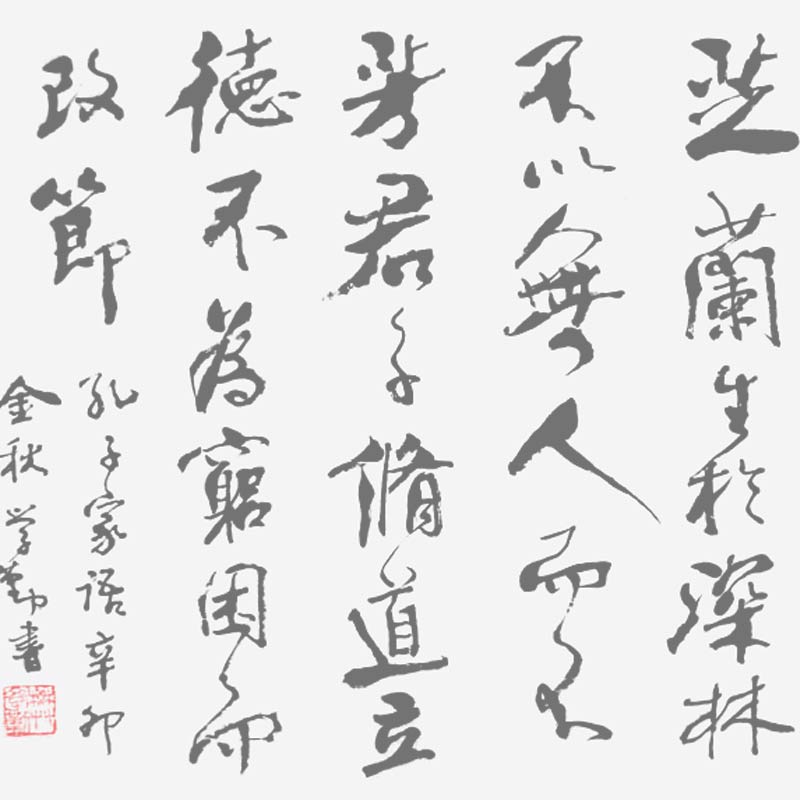 芝蘭生於深林
不以無人而不
芳君子脩道立
德不為窮困而
改節
孔子家語辛卯
金秋学勤書